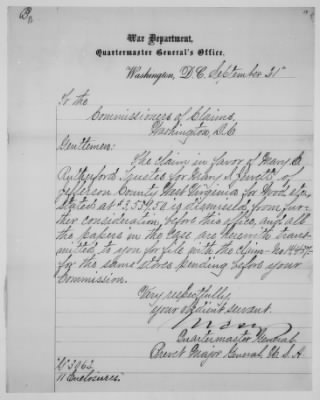 War Department,
Quartermaster General's Office,
Washington, D.C. September 21st
To the
Commissioners of Claims,
Washington, D.C
Gentlemen:
The claim in favor of Mary C.
Rutherford, Trustee for Mary A.
of
Jefferson County West Virginia for Wood &c
stated at $3554.50 is dismissed from fur-
ther consideration, before this office, and all
the papers in the case are herewith trans-
mitted to you for file with the claim No.
for the same stores pending before your
Commission.
Very respectfully,
your obedient servant.
Quartermaster General,
Brevet Major General, U.S.A.
11 Enclosures.